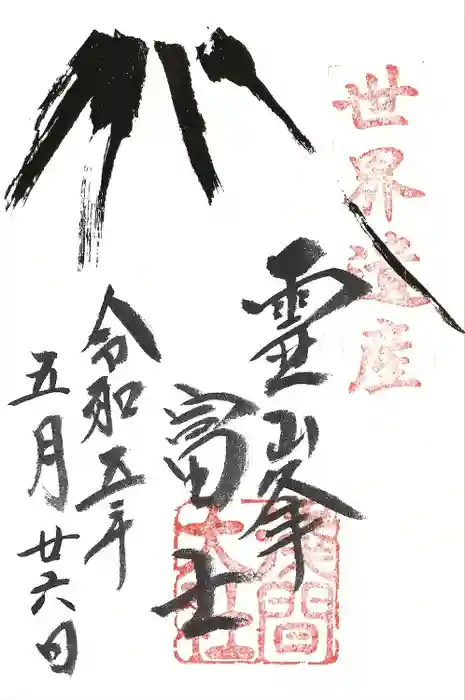 世界遺産
霊峯
富士
浅間
大社
令和五年
五月廿六日